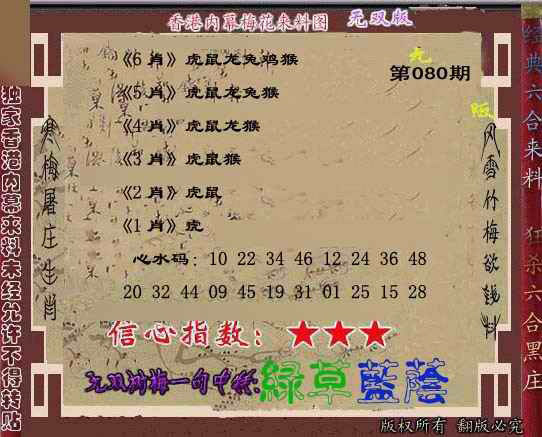 香港内幕梅花来料图 无双版
第080期
无
版
《6 肖》虎鼠龙兔鸡猴
《5 肖》虎鼠龙兔猴
《4 肖》虎鼠龙猴
《3 肖》虎鼠猴
《2 肖》虎鼠
《1 肖》虎
心水码：10 22 34 46 12 24 36 48
20 32 44 09 45 19 31 01 25 15 28
信心指数：★★★
无双浏梅一句中特:綠草藍蔭
独家香港内幕来料未经允许不得转贴
寒梅屠庄生肖
风雪竹梅欲钱料
经典六合来料 狂杀六合黑庄
版权所有 翻版必究